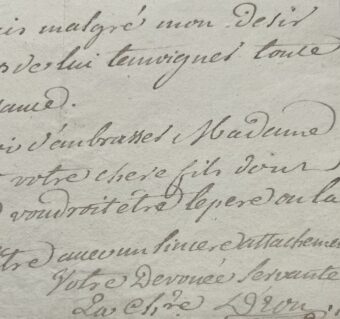 is malgré mon desir
s de lui temoigner toute
ame.
oi d'anbrasser Madame
t votre chere fils dont
voudroit être le pere ou la
tre avec un sincere attacheme
Votre Devouée Servante
La Ch.re D'Eon